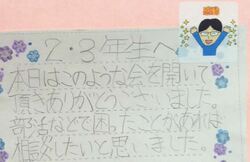 2・3年生へ
本日はこのような会を開いて
頂きありがとうございました。
部活などで困ったことがあれば
相談したいと思いました。